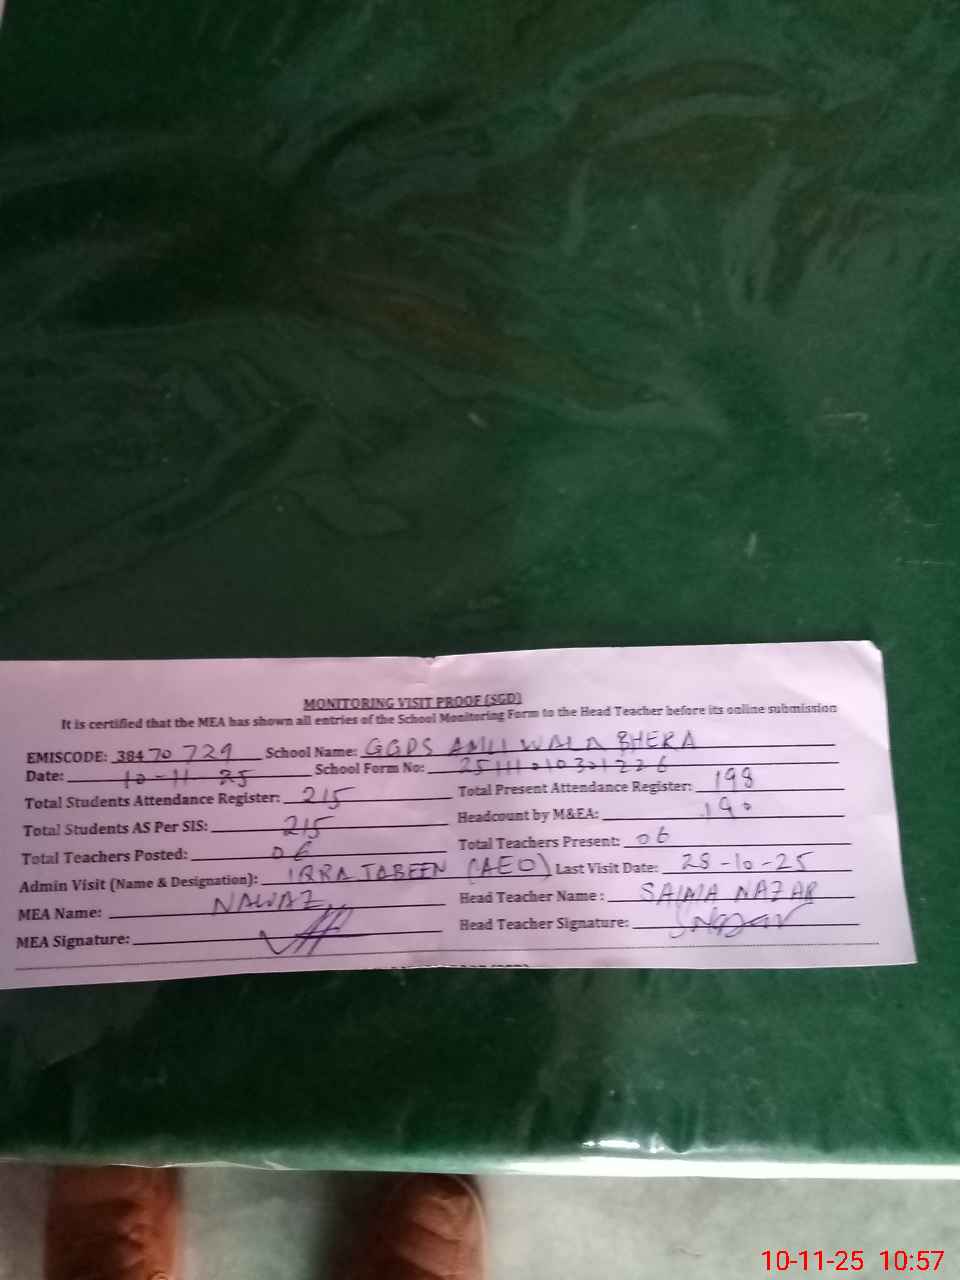 MONITORING VISIT PROOF (SGD)
It is certified that the MEA has shown all entries of the School Monitoring Form to the Head Teacher before its online submission
EMISCODE: 38470729 School Name: GGPS AMLI WALA BHERA
Date: 10-11-25 School Form No: 25111010301226
Total Students Attendance Register: 215 Total Present Attendance Register: 198
Total Students AS Per SIS: 215 Headcount by M&EA: 190
Total Teachers Posted: 06 Total Teachers Present: 06
Admin Visit (Name & Designation): IRRA JABEEN (AEO) Last Visit Date: 28-10-25
MEA Name: NAWAZ Head Teacher Name: SAIMA NAZAR
MEA Signature: Head Teacher Signature:
10-11-25 10:57